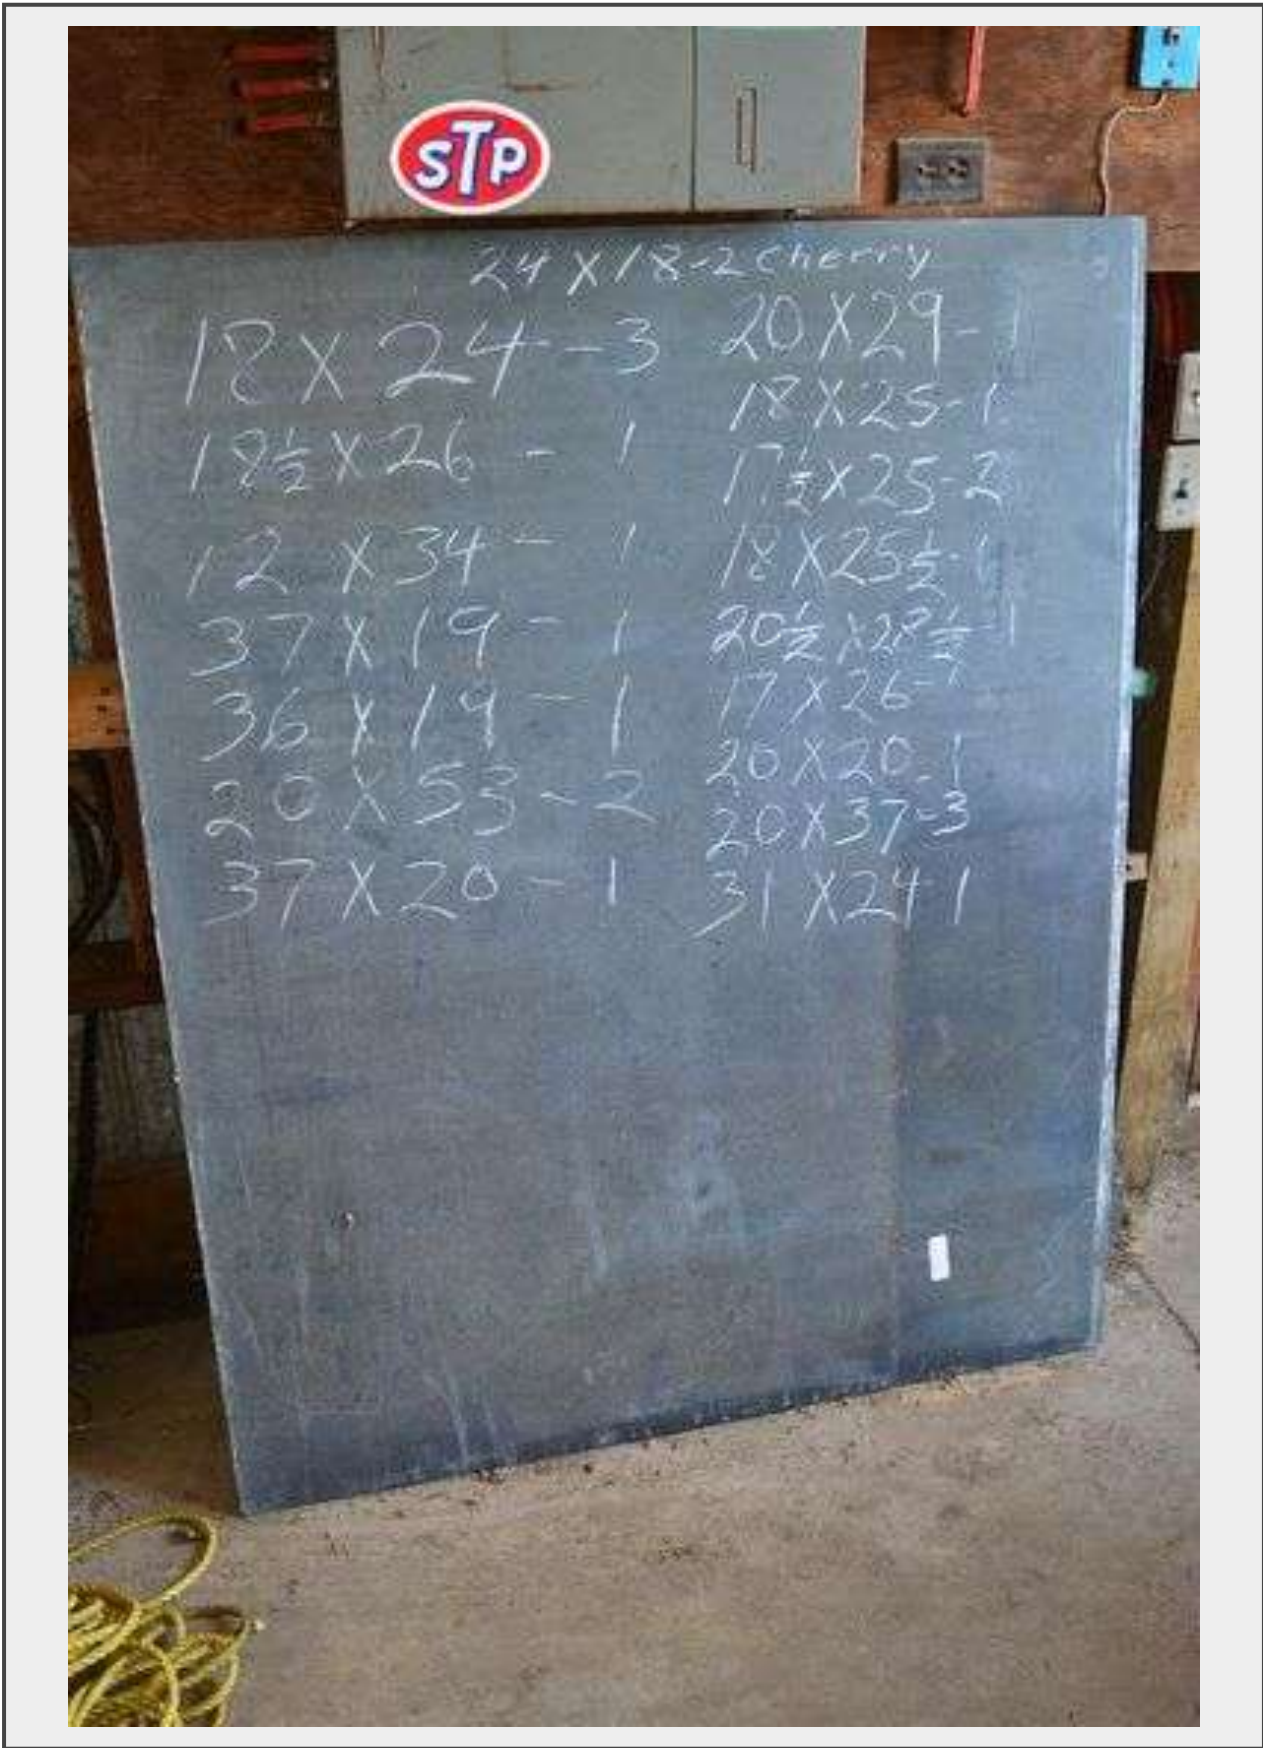 STP
24 X 18-2 cherry
18 X 24 - 3
18½ X 26 - 1
12 X 34 - 1
37 X 19 - 1
36 X 19 - 1
20 X 53 - 2
37 X 20 - 1
20 X 29 - 1
18 X 25 - 1
17½ X 25 - 2
18 X 25½ - 1
20½ X 28½ - 1
17 X 26 - 1
20 X 20 - 1
20 X 37 - 3
31 X 24 1